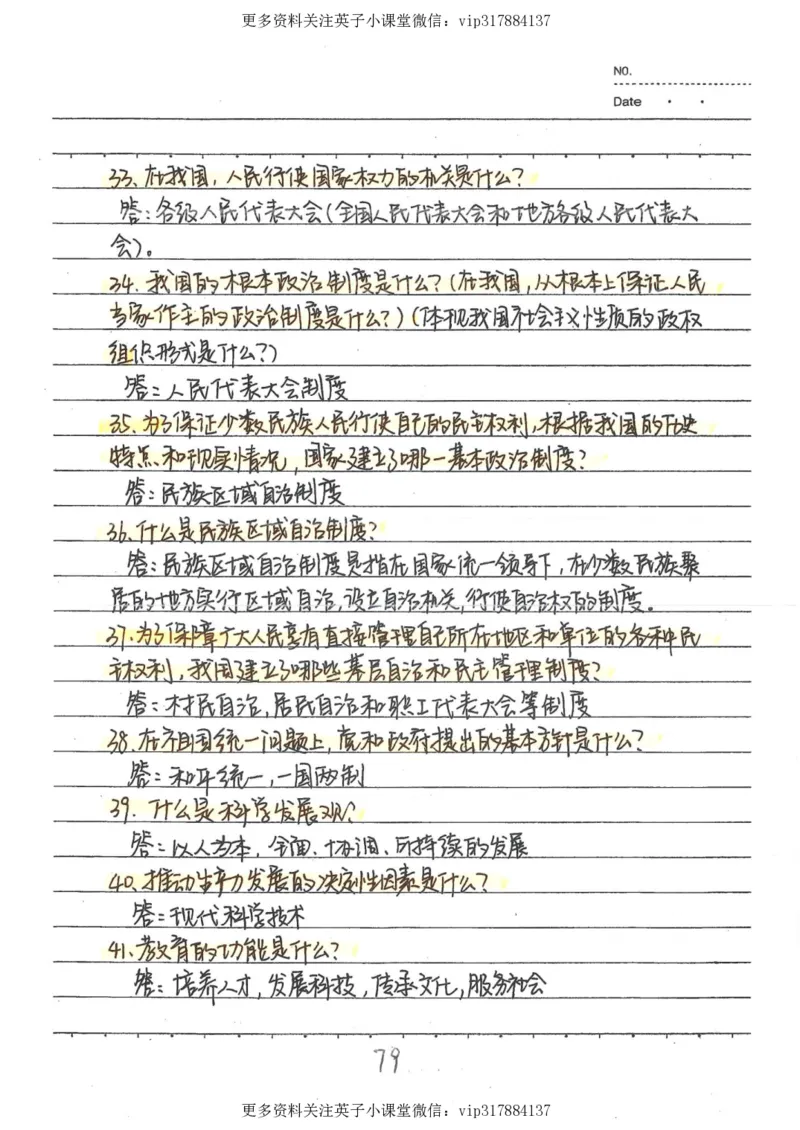 更多资料关注英子小课堂微信：vip317884137
NO.
Date
33、在我国，人民行使国家权力的机关是什么？
答：各级人民代表大会（全国人民代表大会和地方各级人民代表大
会）。
34、我国的根本政治制度是什么？（在我国，从根本上保证人民
当家作主的政治制度是什么？）（体现我国社会主义性质的政权
组织形式是什么？）
答：人民代表大会制度
35、为了保证少数民族人民行使自己的民主权利，根据我国的历史
特点和现实情况，国家建立了哪一基本政治制度？
答：民族区域自治制度
36、什么是民族区域自治制度？
答：民族区域自治制度是指在国家统一领导下，在少数民族聚
居的地方实行区域自治，设立自治机关，行使自治权的制度。
37、为了保障广大人民享有直接管理自己所在地区和单位的各种民
主权利，我国建立了哪些基层自治和民主管理制度？
答：村民自治，居民自治和职工代表大会等制度
38、在祖国统一问题上，党和政府提出的基本方针是什么？
答：和平统一，一国两制
39、什么是科学发展观？
答：以人为本，全面、协调、可持续的发展
40、推动生产力发展的决定性因素是什么？
答：现代科学技术
41、教育的功能是什么？
答：培养人才，发展科技，传承文化，服务社会
79
更多资料关注英子小课堂微信：vip317884137